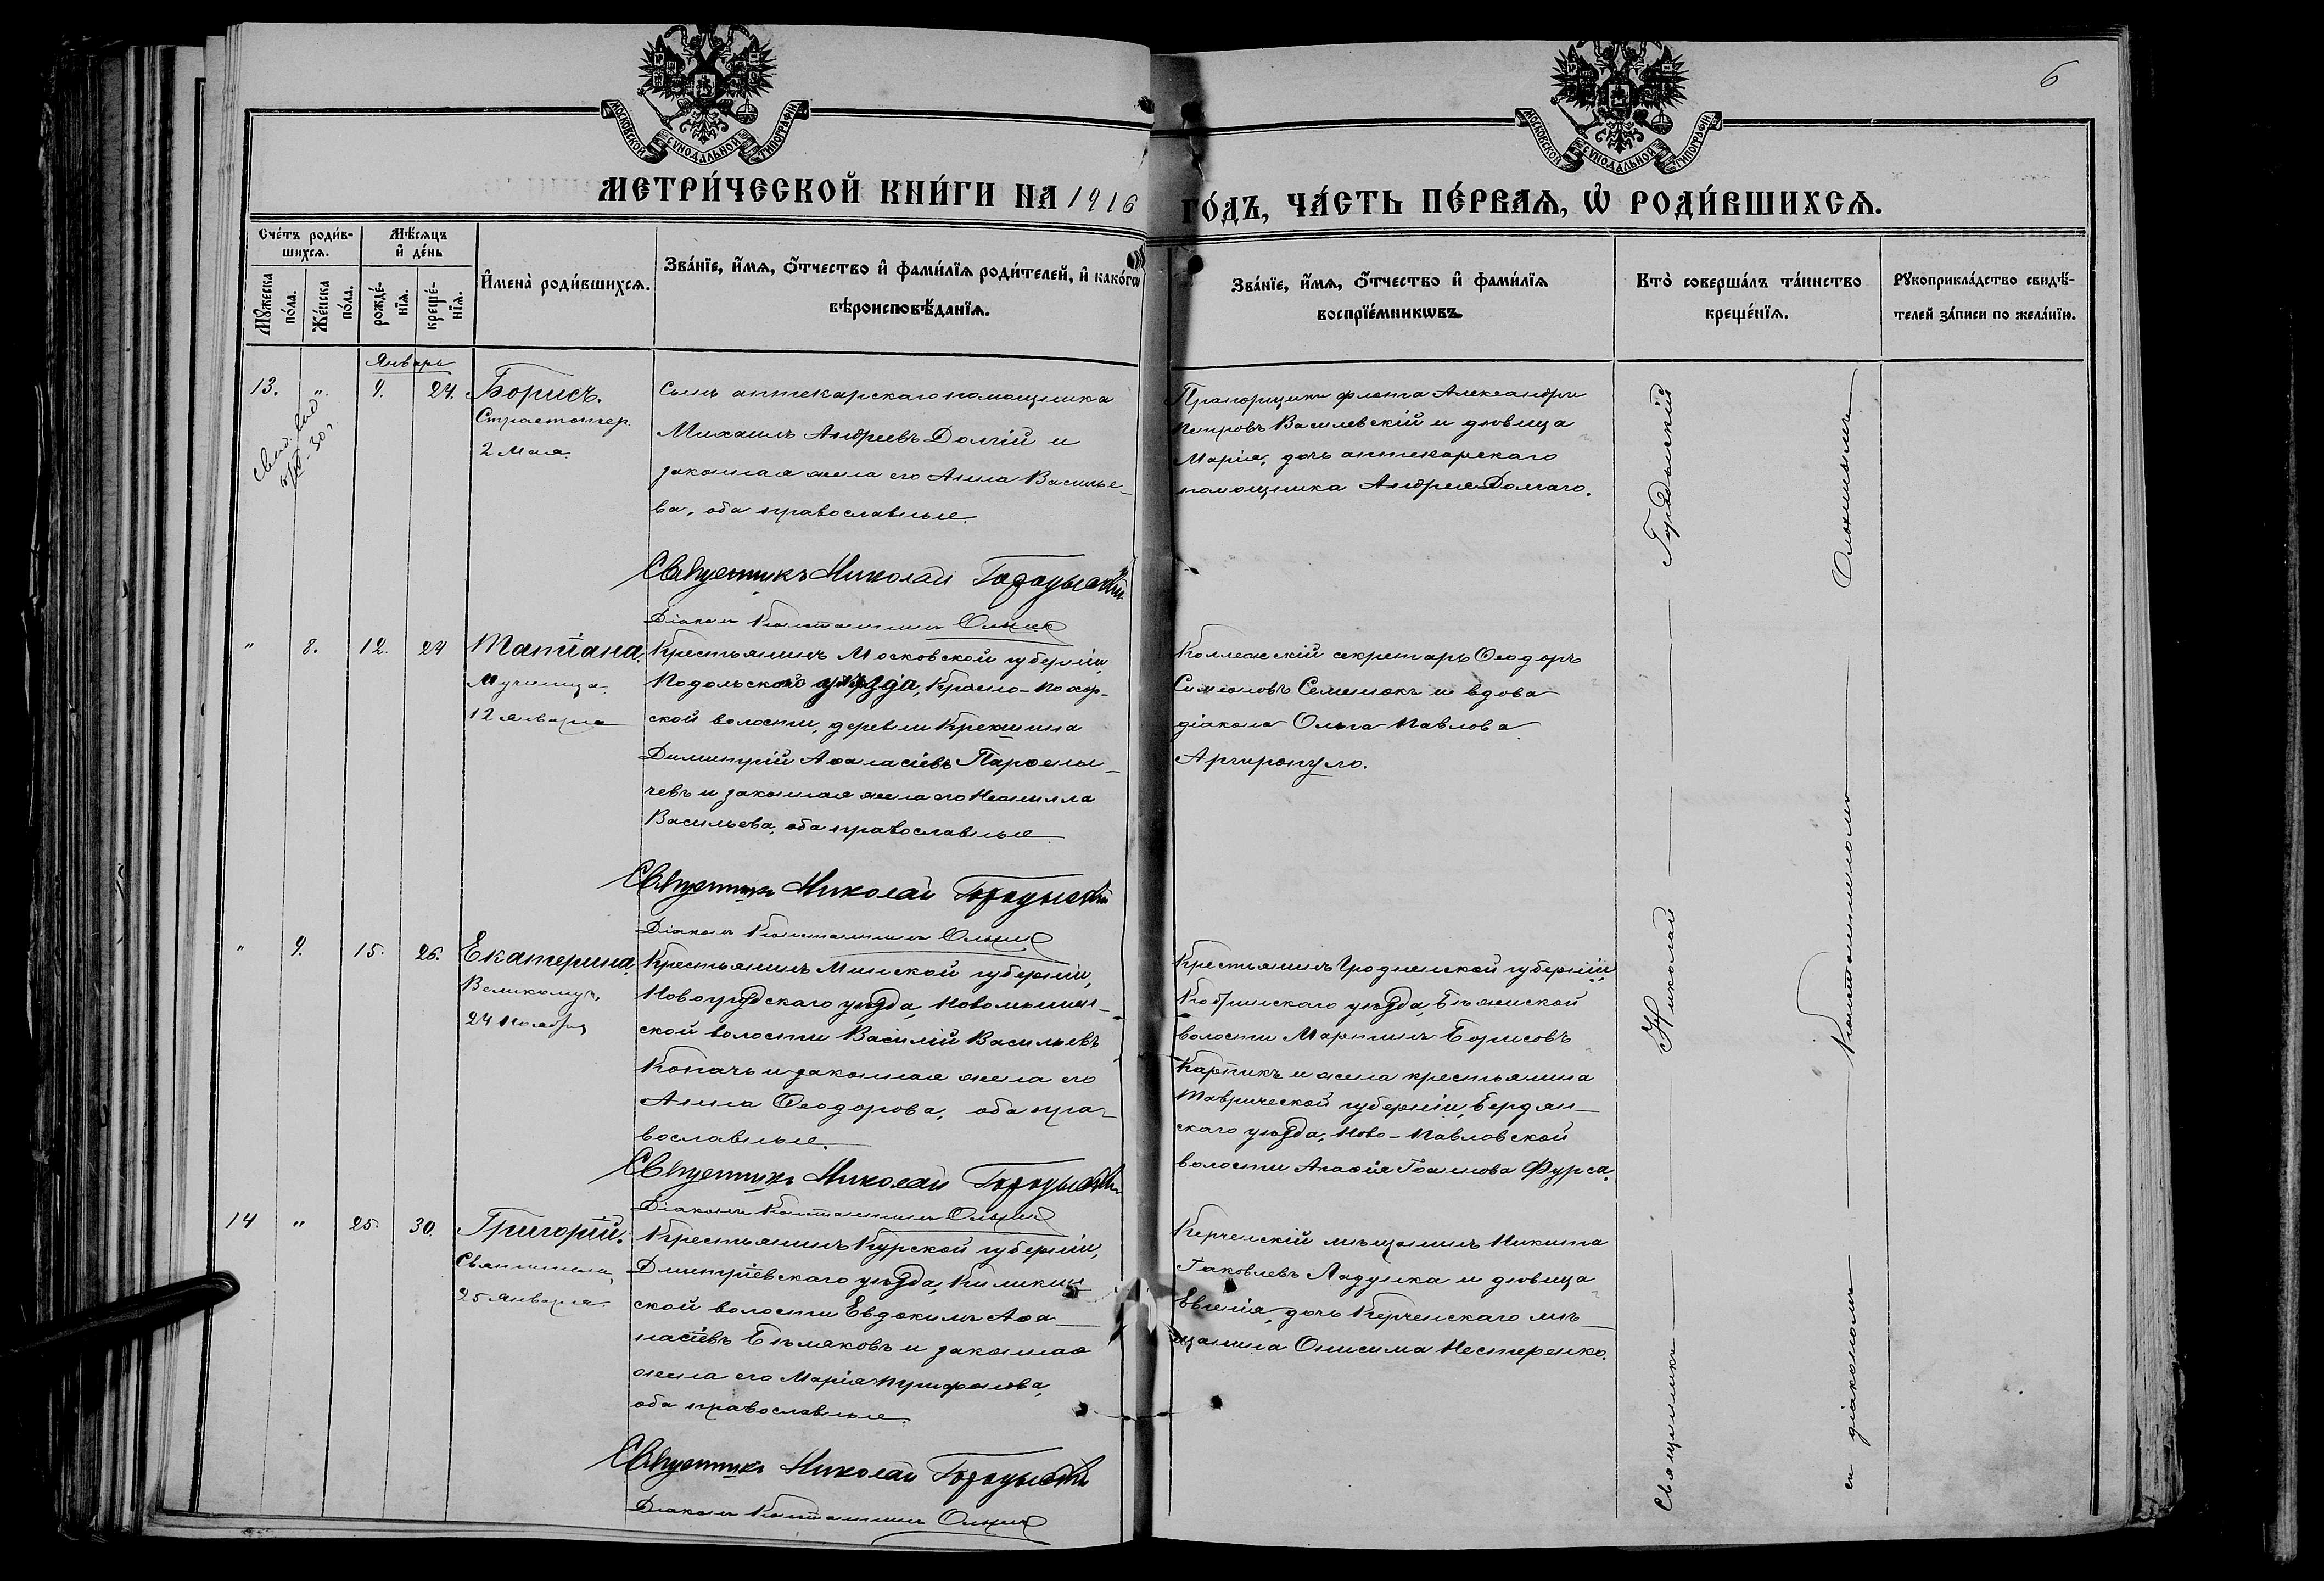 6
МОСКОВСКОЙ СѴНОДАЛЬНОЙ ТИПОГРАФІИ
МОСКОВСКОЙ СѴНОДАЛЬНОЙ ТИПОГРАФІИ
МЕТРИ́ЧЕСКОЙ КНИ́ГИ НА 1916 ГО́ДЪ, ЧА́СТЬ ПЕ́РВАЯ, Ѡ҆ РОДИ́ВШИХСЯ.
Сче́тъ роди́в-
шихся.
Мꙋжеска по́ла.
Же́нска по́ла.
Мѣ́сяцъ и҆ де́нь
рожде́-нїя.
креще́-нїя.
И҆мена̀ роди́вшихся.
Зва́нїе, и҆́мя, ѻ҆́тчество и҆ фами́лїя роди́телей, и҆ како́гѡ
вѣроисповѣ́данїя.
Зва́нїе, и҆́мя, ѻ҆́тчество и҆ фами́лїя
воспрїе́мникѡвъ.
Кто̀ соверша́лъ та́инство
креще́нїя.
Рꙋкоприкла́дство свидѣ́-
телей за́писи по жела́нїю.
Январь
13. " 9. 24. Борисъ.
Страстотер.
2 Мая.
Сынъ аптекарскаго помощника
Михаилъ Андреевъ Долгій и
законная жена его Анна Василье-
ва, оба православные.
Священникъ Николай Городыскій
Діаконъ Константинъ
Прапорщикъ флота Александръ
Петровъ Василевскій и дѣвица
Марія, дочь аптекарскаго
помощника Андрея Долгаго.
" 8. 12. 24 Татіана.
Мученица
12 Января
Крестьянинъ Московской губерніи,
Подольскаго уѣзда, Красно-Пахор-
ской волости, деревни Крекшина
Димитрій Аѳанасіевъ Парѳены-
чевъ и законная жена его Неонилла
Васильева, оба православные
Священникъ Николай Городыскій
Діаконъ Константинъ
Коллежскій секретарь Ѳеодоръ
Симеоновъ Семенюкъ и вдова
діакона Ольга Павлова
Аргиропуло.
" 9. 15. 26. Екатерина.
Великомуч.
24 Ноября
Крестьянинъ Минской губерніи,
Новогрудскаго уѣзда, Новомышш-
ской волости Василій Васильевъ
Копачъ и законная жена его
Анна Ѳеодорова, оба пра-
вославные.
Священникъ Николай Городыскій
Діаконъ Константинъ
Крестьянинъ Гродненской губерніи,
Кобринскаго уѣзда,
волости Мартинъ Борисовъ
Карпикъ и жена крестьянина
Таврической губерніи, Бердян-
скаго уѣзда, Ново-Павловской
волости Агаѳія Іоаннова Фурса.
14 " 25. 30. Григорій.
Святителя
25 Января.
Крестьянинъ Курской губерніи,
Дмитріевскаго уѣзда,
ской волости Евдокимъ Аѳа-
насіевъ Бѣляковъ и законная
жена его Марія Труфонова,
оба православные.
Священникъ Николай Городыскій
Діаконъ Константинъ
Керченскій мѣщанинъ Никита
Іаковлевъ Ладушка и дѣвица
Евгенія, дочь Керченскаго мѣ-
щанина Онисима Нестеренко.
Священникъ Николай Городыскій
съ діакономъ Константиномъ